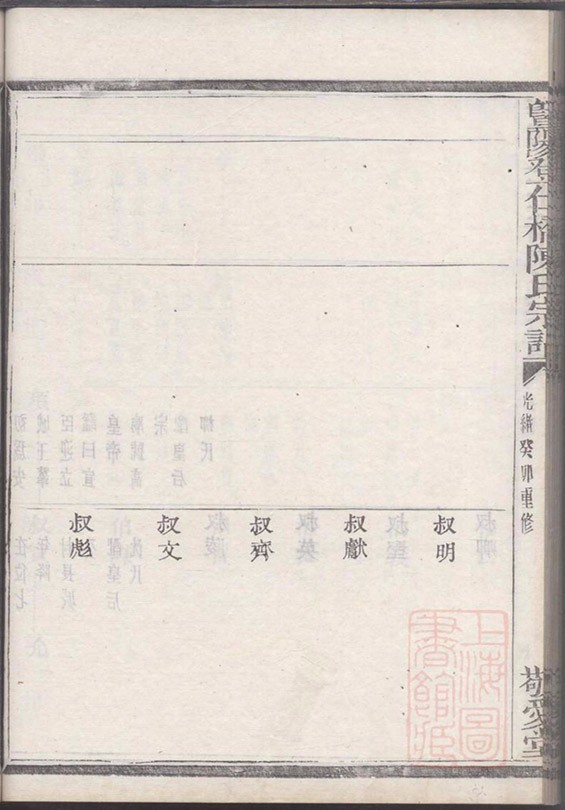 暨陽登仕橋陳氏宗譜
光緒癸卯重修
敬愛堂
叔明
叔獻
叔齊
叔文
叔彪
上海圖書館藏